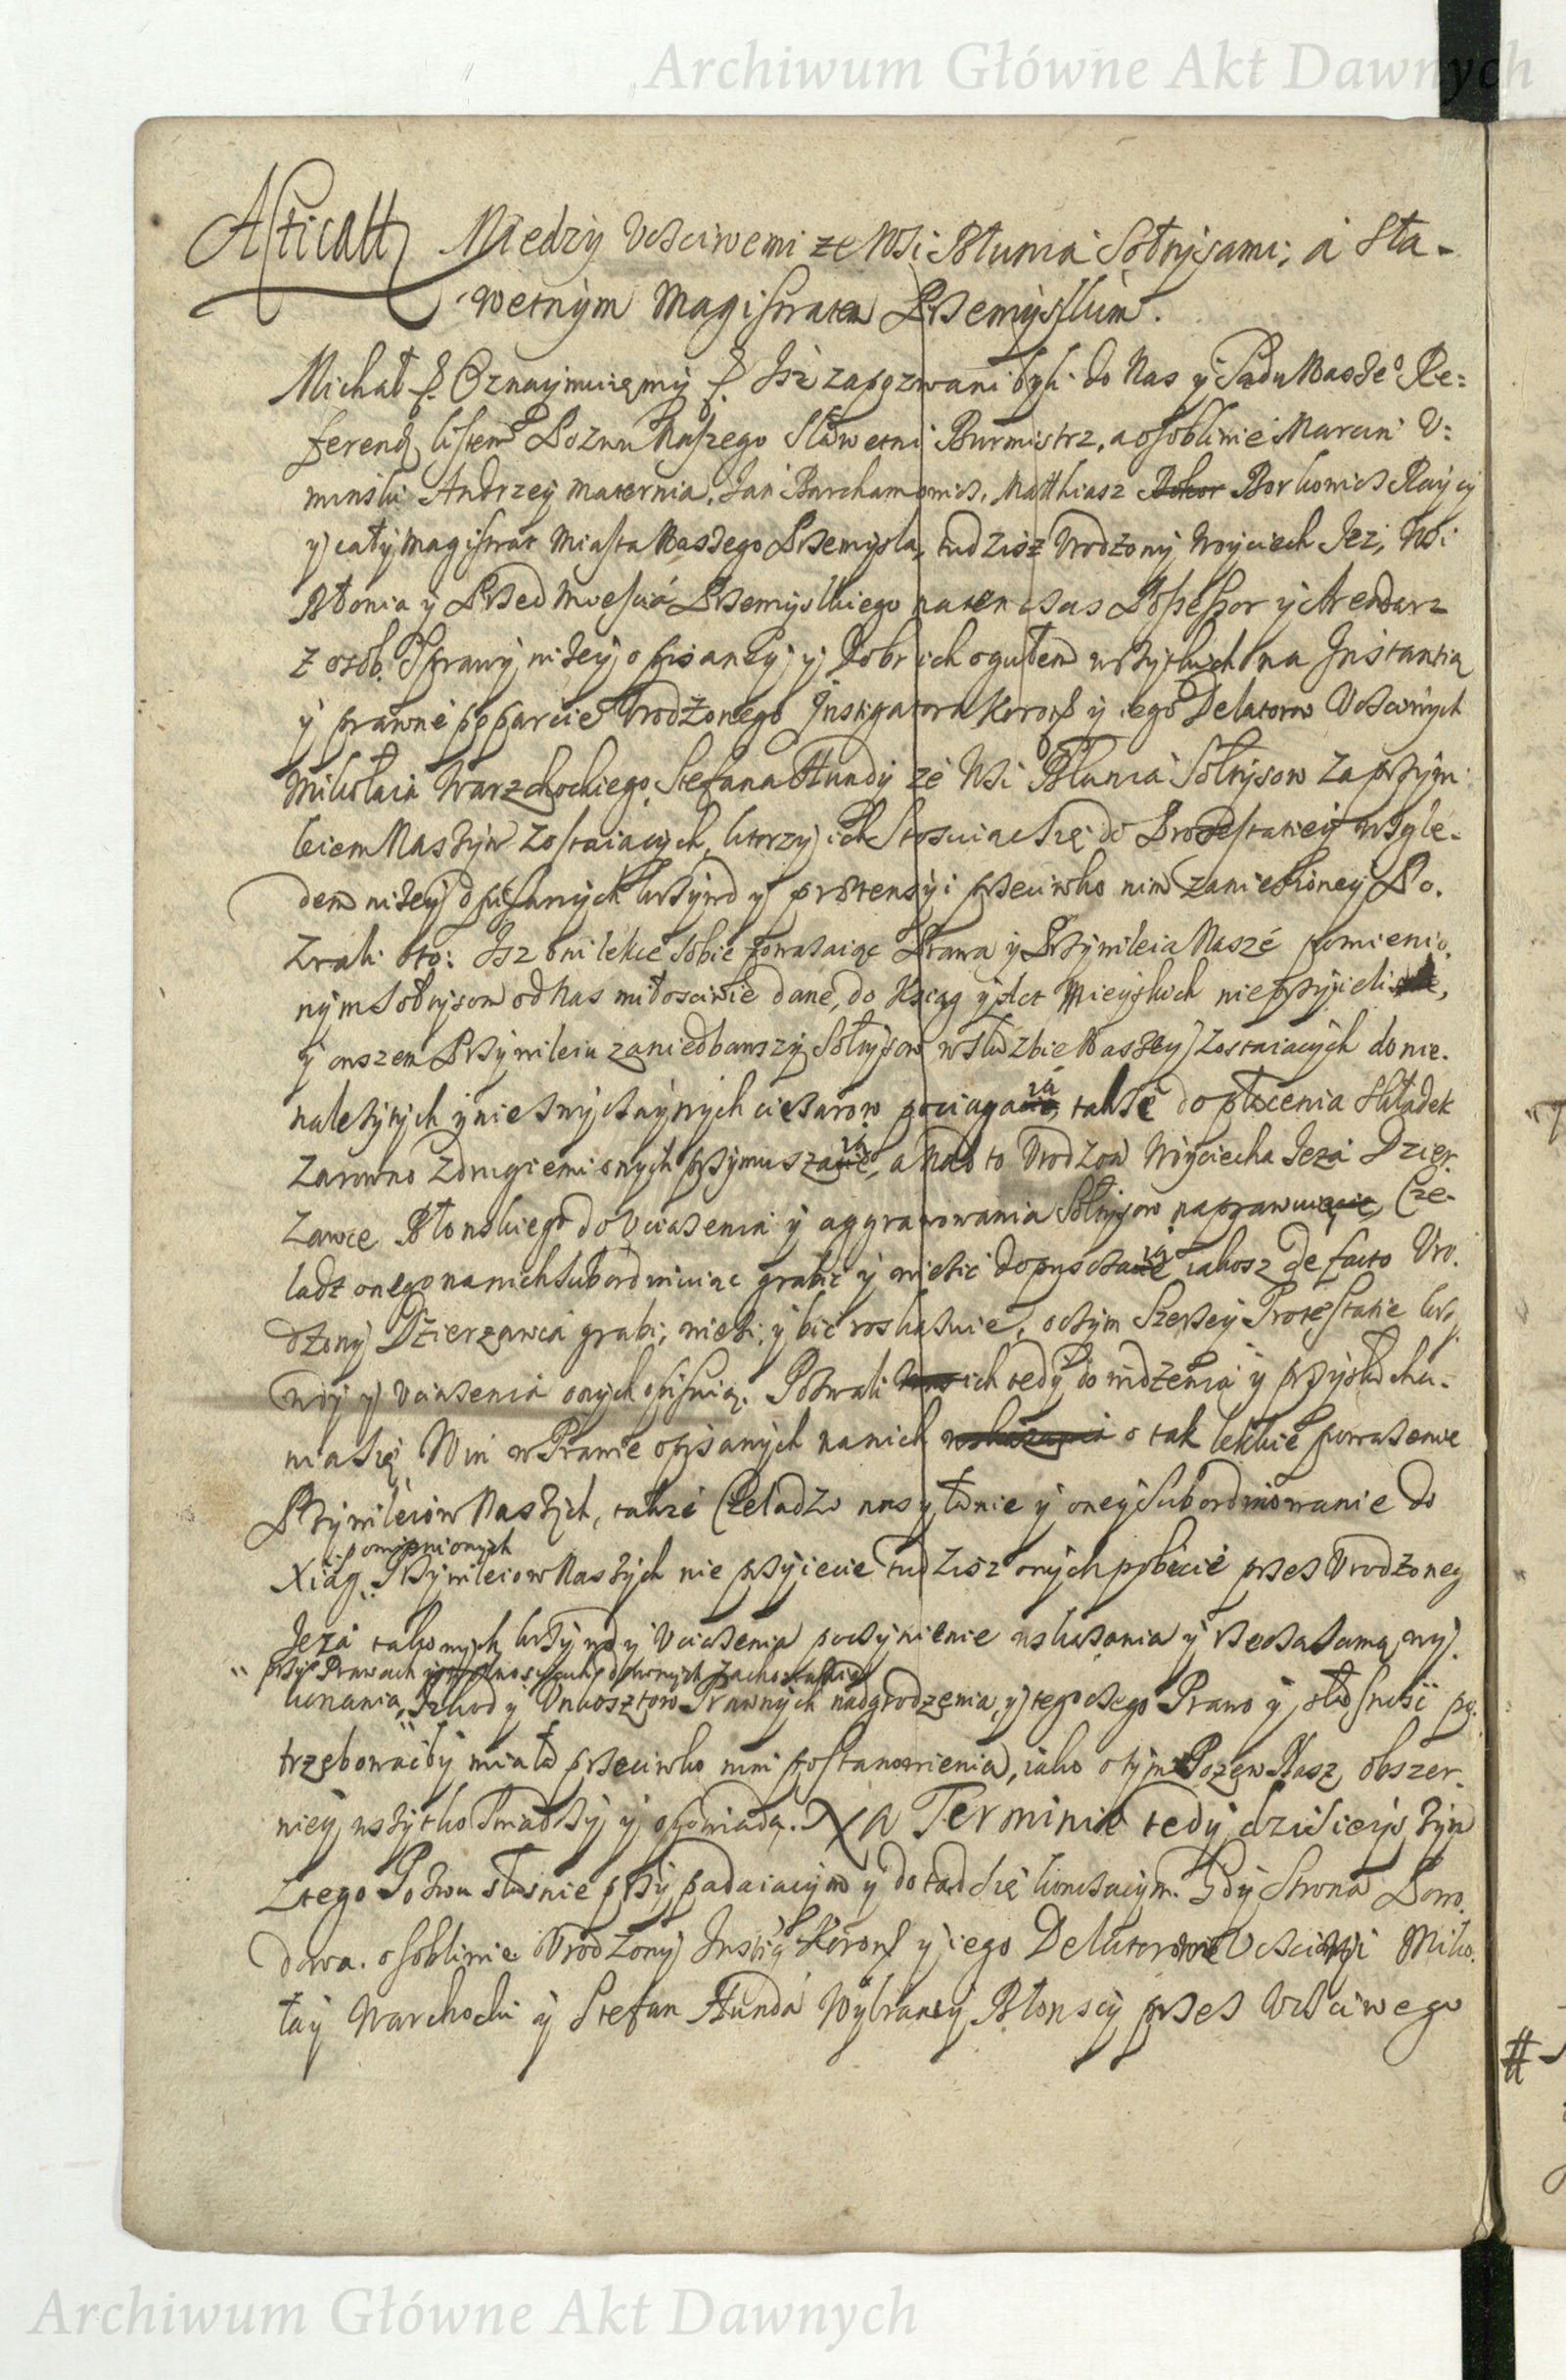 Archiwum Główne Akt Dawnych
Między Uczciwemi ze Wsi Błunia Sołtysami, á Sła-
wetnym Magistratem Przemyslkim.
Michał Oznaymuięmy Isz zapozwani byli do Nas y Sądu Nasze° Re:
ferend, listem Pozwu Naszego Sławetni Burmistrz, a osobliwie Marcin U:
minski Andrzey Maternia, Jan Barchamowicz, Matthiasz Borkowicz Raycy
y cały Magistrat Miasta Naszego Przemysla, tudziesz Urodzony Woyciech Jez, Wsi
Błonia y Przedmiescia Przemyslkiego na ten czas Possessor y Arendarz
z osób Sprawy niżey opisaney y Dobr ich ogułem wszytkich na Instantią
y prawne poparcie Urodzonego Instigatora Koron y iego Delatorow Uczciwych
Mikołaia Warzchockiego, Stefana Hundy ze Wsi Błunia Sołtysow za przywi
leiem Naszym zostaiących, ktorzy ich stosuiąc się do Protestatiey wzglę-
dem niżey opisanych krzywd y pretensyi przeciwko nim zaniesioney Po.
zwali oto: Isz oni lekce sobie poważaiąc Prawa y Przywileia Nasze pomienio.
nym Sołtysom od Nas miłosciwie dane, do Ksiąg y Act Mieyskich nie przyieli,
y owszem Przywileiu zaniedbawszy Sołtysow w służbie Naszey zostaiących do nie.
należytych y niezwyczaynych ciężarow pociągaią, także do płacenia składek
zarowno z drugiemi onych przymuszaią, a nad to Urodzon Woyciecha Jeza Dzier.
zawcę Błonskiego do uciążenia y aggrawowania Sołtysow naprawuią, Cze-
ladz onego na nich subordinuiąc grabić y więzić dopuszczaią iakosz de facto Uro.
dzony Dzierzawca grabi, więzi, y bić roskazuie, o czym szerzey Protestatie krzy
wdy y uciążenia onych opisuią. Pozwali ich tedy do widzenia y przysłucha-
nia się Win w Prawie opisanych na nich o tak lekkie poważenie
Przywileiow Naszych, także Czeladzi nasyłanie y oney subordinowanie do
pomienionych
Xiąg Przywileiow Naszych nie przyięcie tudziesz onych pobicie przez Urodzoneg
Jeza takowych krzywd y uciążenia poczynienie wskazania y rzeczą samą wy.
przy Prawach y wolnosciach dawnych zachowania
konania, Szkod y Unkosztow Prawnych nadgrodzenia, y tego czego Prawo y słuszność po.
trzebowaćby miała przeciwko nim postanowienia, iako o tym Pozew Nasz obszer.
niey wszytko swiadczy y opowiada. Na Terminie tedy dzisieyszym
z tego Pozwu słusznie przypadaiącym y dotąd się kontczącym. Gdy Strona Powo.
dowa. osobliwie Urodzony Instig Koron y iego Delatorowie Uczciwi Miko.
łay Warchocki y Stefan Hunda Wybrańcy Błonscy przez Uczciwego
Archiwum Główne Akt Dawnych